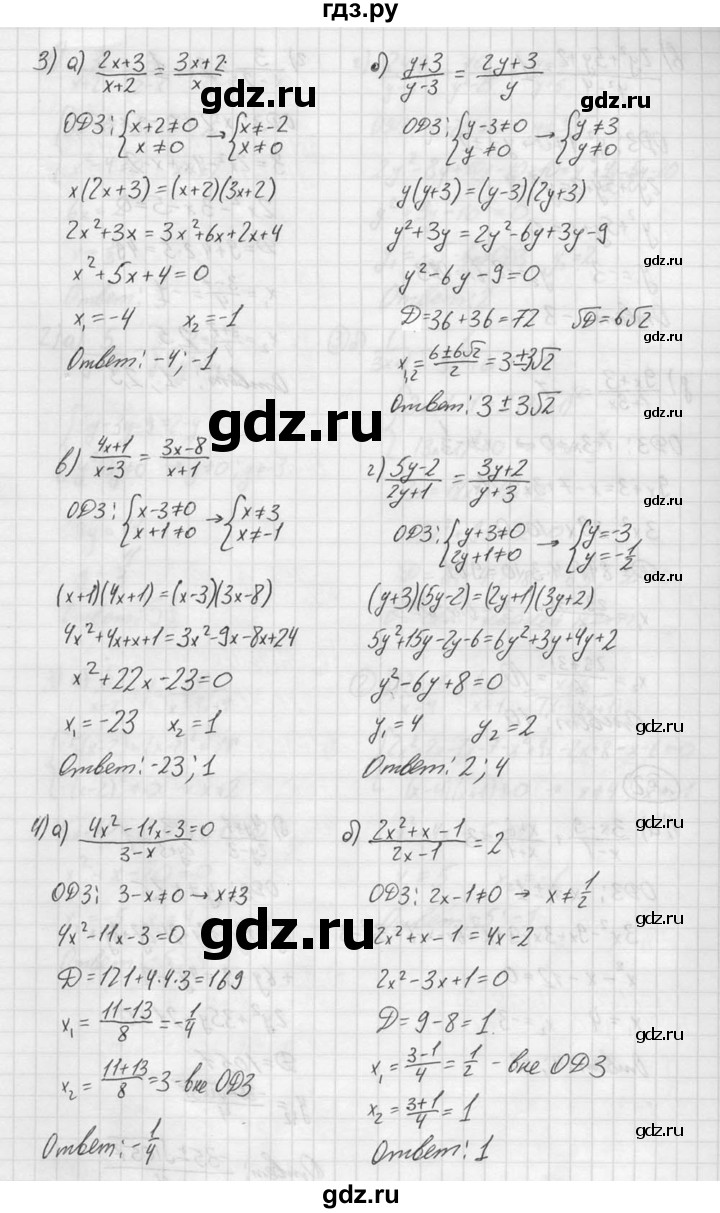 гдз.ру
3) а) (2x+3)/(x+2) = (3x+2)/x
ОДЗ: {x+2≠0 → {x≠-2
{x≠0 {x≠0
x(2x+3)=(x+2)(3x+2)
2x²+3x=3x²+6x+2x+4
x²+5x+4=0
x₁=-4 x₂=-1
Ответ: -4; -1
б) (y+3)/(y-3) = (2y+3)/y
gdz.ru
ОДЗ: {y-3≠0 → {y≠3
{y≠0 {y≠0
y(y+3)=(y-3)(2y+3)
y²+3y=2y²-6y+3y-9
gdz.ru
y²-6y-9=0
D=36+36=72 √D=6√2
gdz.ru
x₁,₂=(6±6√2)/2=3±3√2
Ответ: 3±3√2
gdz.ru
в) (4x+1)/(x-3) = (3x-8)/(x+1)
ОДЗ: {x-3≠0 → {x≠3
{x+1≠0 {x≠-1
(x+1)(4x+1)=(x-3)(3x-8)
4x²+4x+x+1=3x²-9x-8x+24
x²+22x-23=0
x₁=-23 x₂=1
Ответ: -23; 1
г) (5y-2)/(2y+1) = (3y+2)/(y+3)
gdz.ru
ОДЗ: {y+3≠0 → {y=-3
{2y+1≠0 {y=-1/2
(y+3)(5y-2)=(2y+1)(3y+2)
5y²+15y-2y-6=6y²+3y+4y+2
gdz.ru
y²-6y+8=0
y₁=4 y₂=2
gdz.ru
Ответ: 2; 4
gdz.ru
4) а) (4x²-11x-3)/(3-x)=0
ОДЗ: 3-x≠0 → x≠3
4x²-11x-3=0
gdz.ru
D=121+4·4·3=169
x₁=(11-13)/8=-1/4
x₂=(11+13)/8=3-вне ОДЗ
Ответ: -1/4
б) (2x²+x-1)/(2x-1)=2
gdz.ru
ОДЗ: 2x-1≠0 → x≠1/2
2x²+x-1=4x-2
gdz.ru
2x²-3x+1=0
D=9-8=1
gdz.ru
x₁=(3-1)/4=1/2 - вне ОДЗ
x₂=(3+1)/4=1
gdz.ru
Ответ: 1
gdz.ru